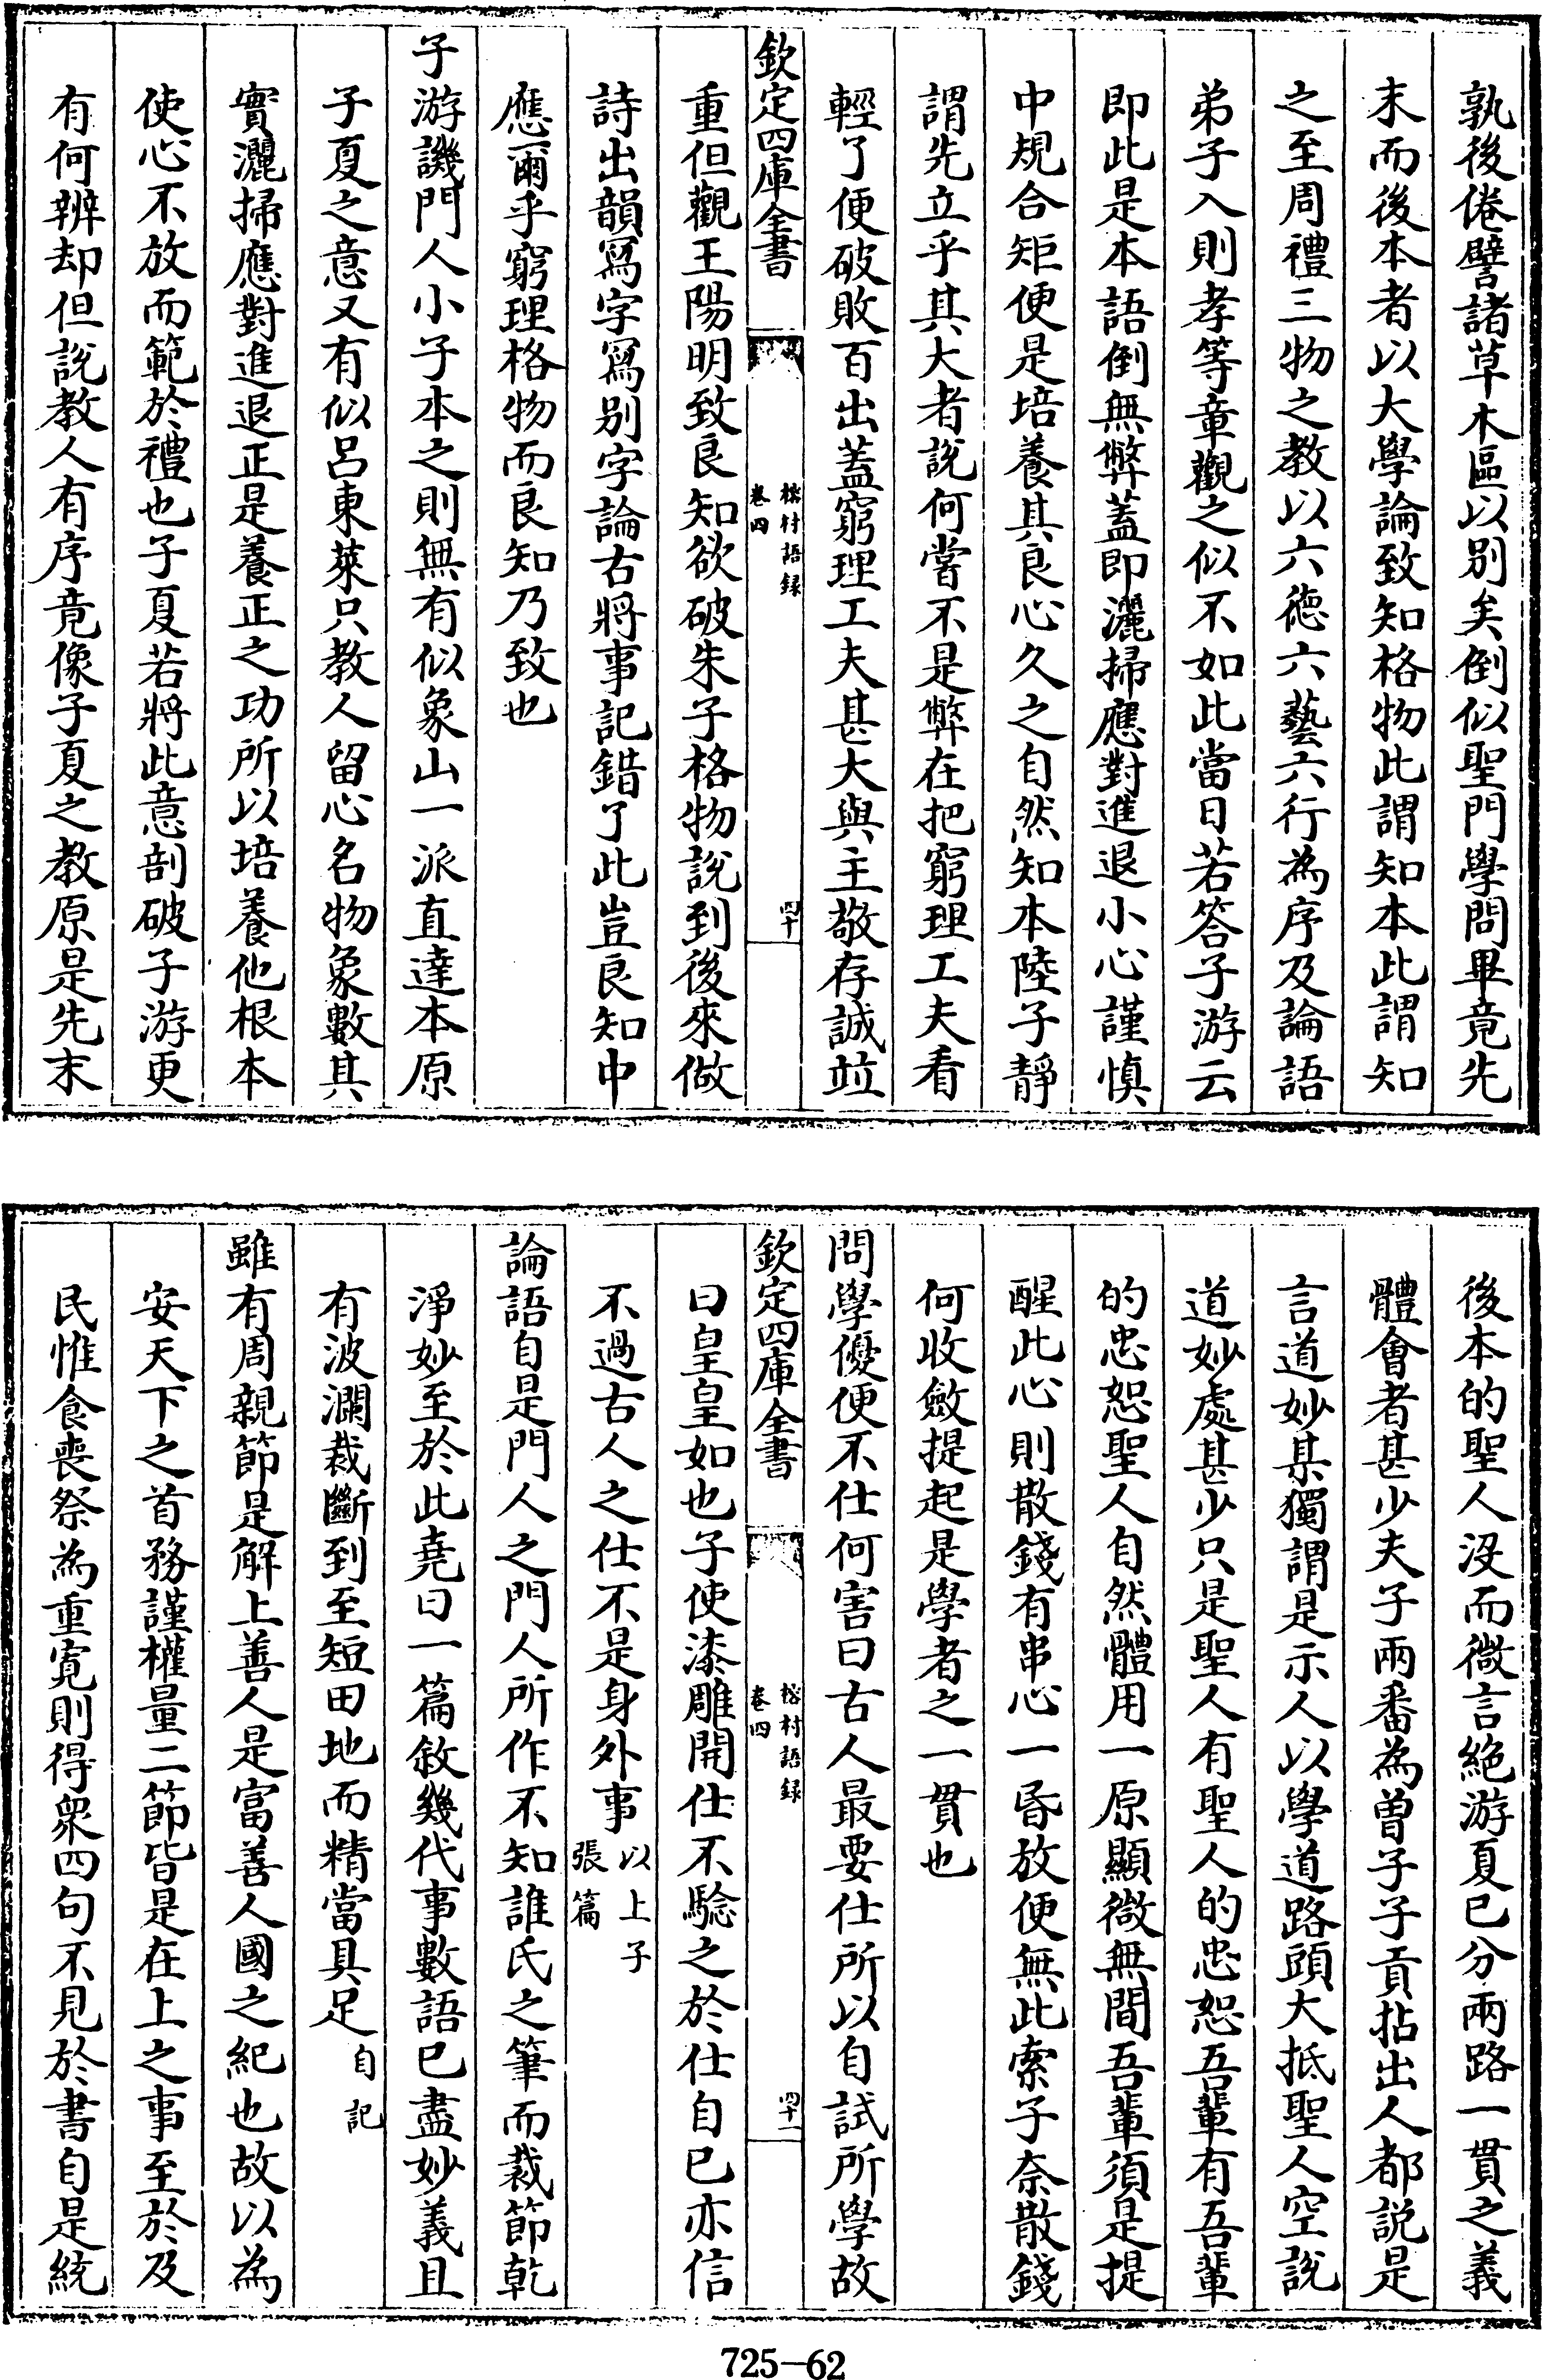 孰後倦譬諸草木區以别矣倒似聖門學問畢竟先
末而後本者以大學論致知格物此謂知本此謂知
之至周禮三物之教以六德六藝六行為序及論語
弟子入則孝等章觀之似不如此當日若答子游云
即此是本語倒無弊蓋即灑掃應對進退小心謹慎
中規合矩便是培養其良心久之自然知本陸子靜
謂先立乎其大者說何嘗不是弊在把窮理工夫看
輕了便破敗百出蓋窮理工夫甚大與主敬存誠竝
欽定四庫全書
榕村語録
卷四
四十
重但觀王陽明致良知欲破朱子格物說到後來做
詩出韻寫字寫别字論古將事記錯了此豈良知中
應爾乎窮理格物而良知乃致也
子游譏門人小子本之則無有似象山一派直達本原
子夏之意又有似呂東萊只教人留心名物象數其
實灑掃應對進退正是養正之功所以培養他根本
使心不放而範於禮也子夏若將此意剖破子游更
有何辨却但說教人有序竟像子夏之教原是先末
後本的聖人没而微言絶游夏已分兩路一貫之義
體會者甚少夫子兩番為曽子子貢拈出人都説是
言道妙某獨謂是示人以學道路頭大抵聖人空說
道妙處甚少只是聖人有聖人的忠恕吾輩有吾輩
的忠恕聖人自然體用一原顯微無間吾輩須是提
醒此心則散錢有串心一昏放便無此索子奈散錢
何收斂提起是學者之一貫也
問學優便不仕何害曰古人最要仕所以自試所學故
欽定四庫全書
榕村語録
卷四
四十一
曰皇皇如也子使漆雕開仕不驗之於仕自已亦信
不過古人之仕不是身外事以上子張篇
論語自是門人之門人所作不知誰氏之筆而裁節乾
淨妙至於此堯曰一篇敘幾代事數語已盡妙義且
有波瀾裁斷到至短田地而精當具足自記
雖有周親節是解上善人是富善人國之紀也故以為
安天下之首務謹權量二節皆是在上之事至於及
民惟食喪祭為重寬則得衆四句不見於書自是統
725-62